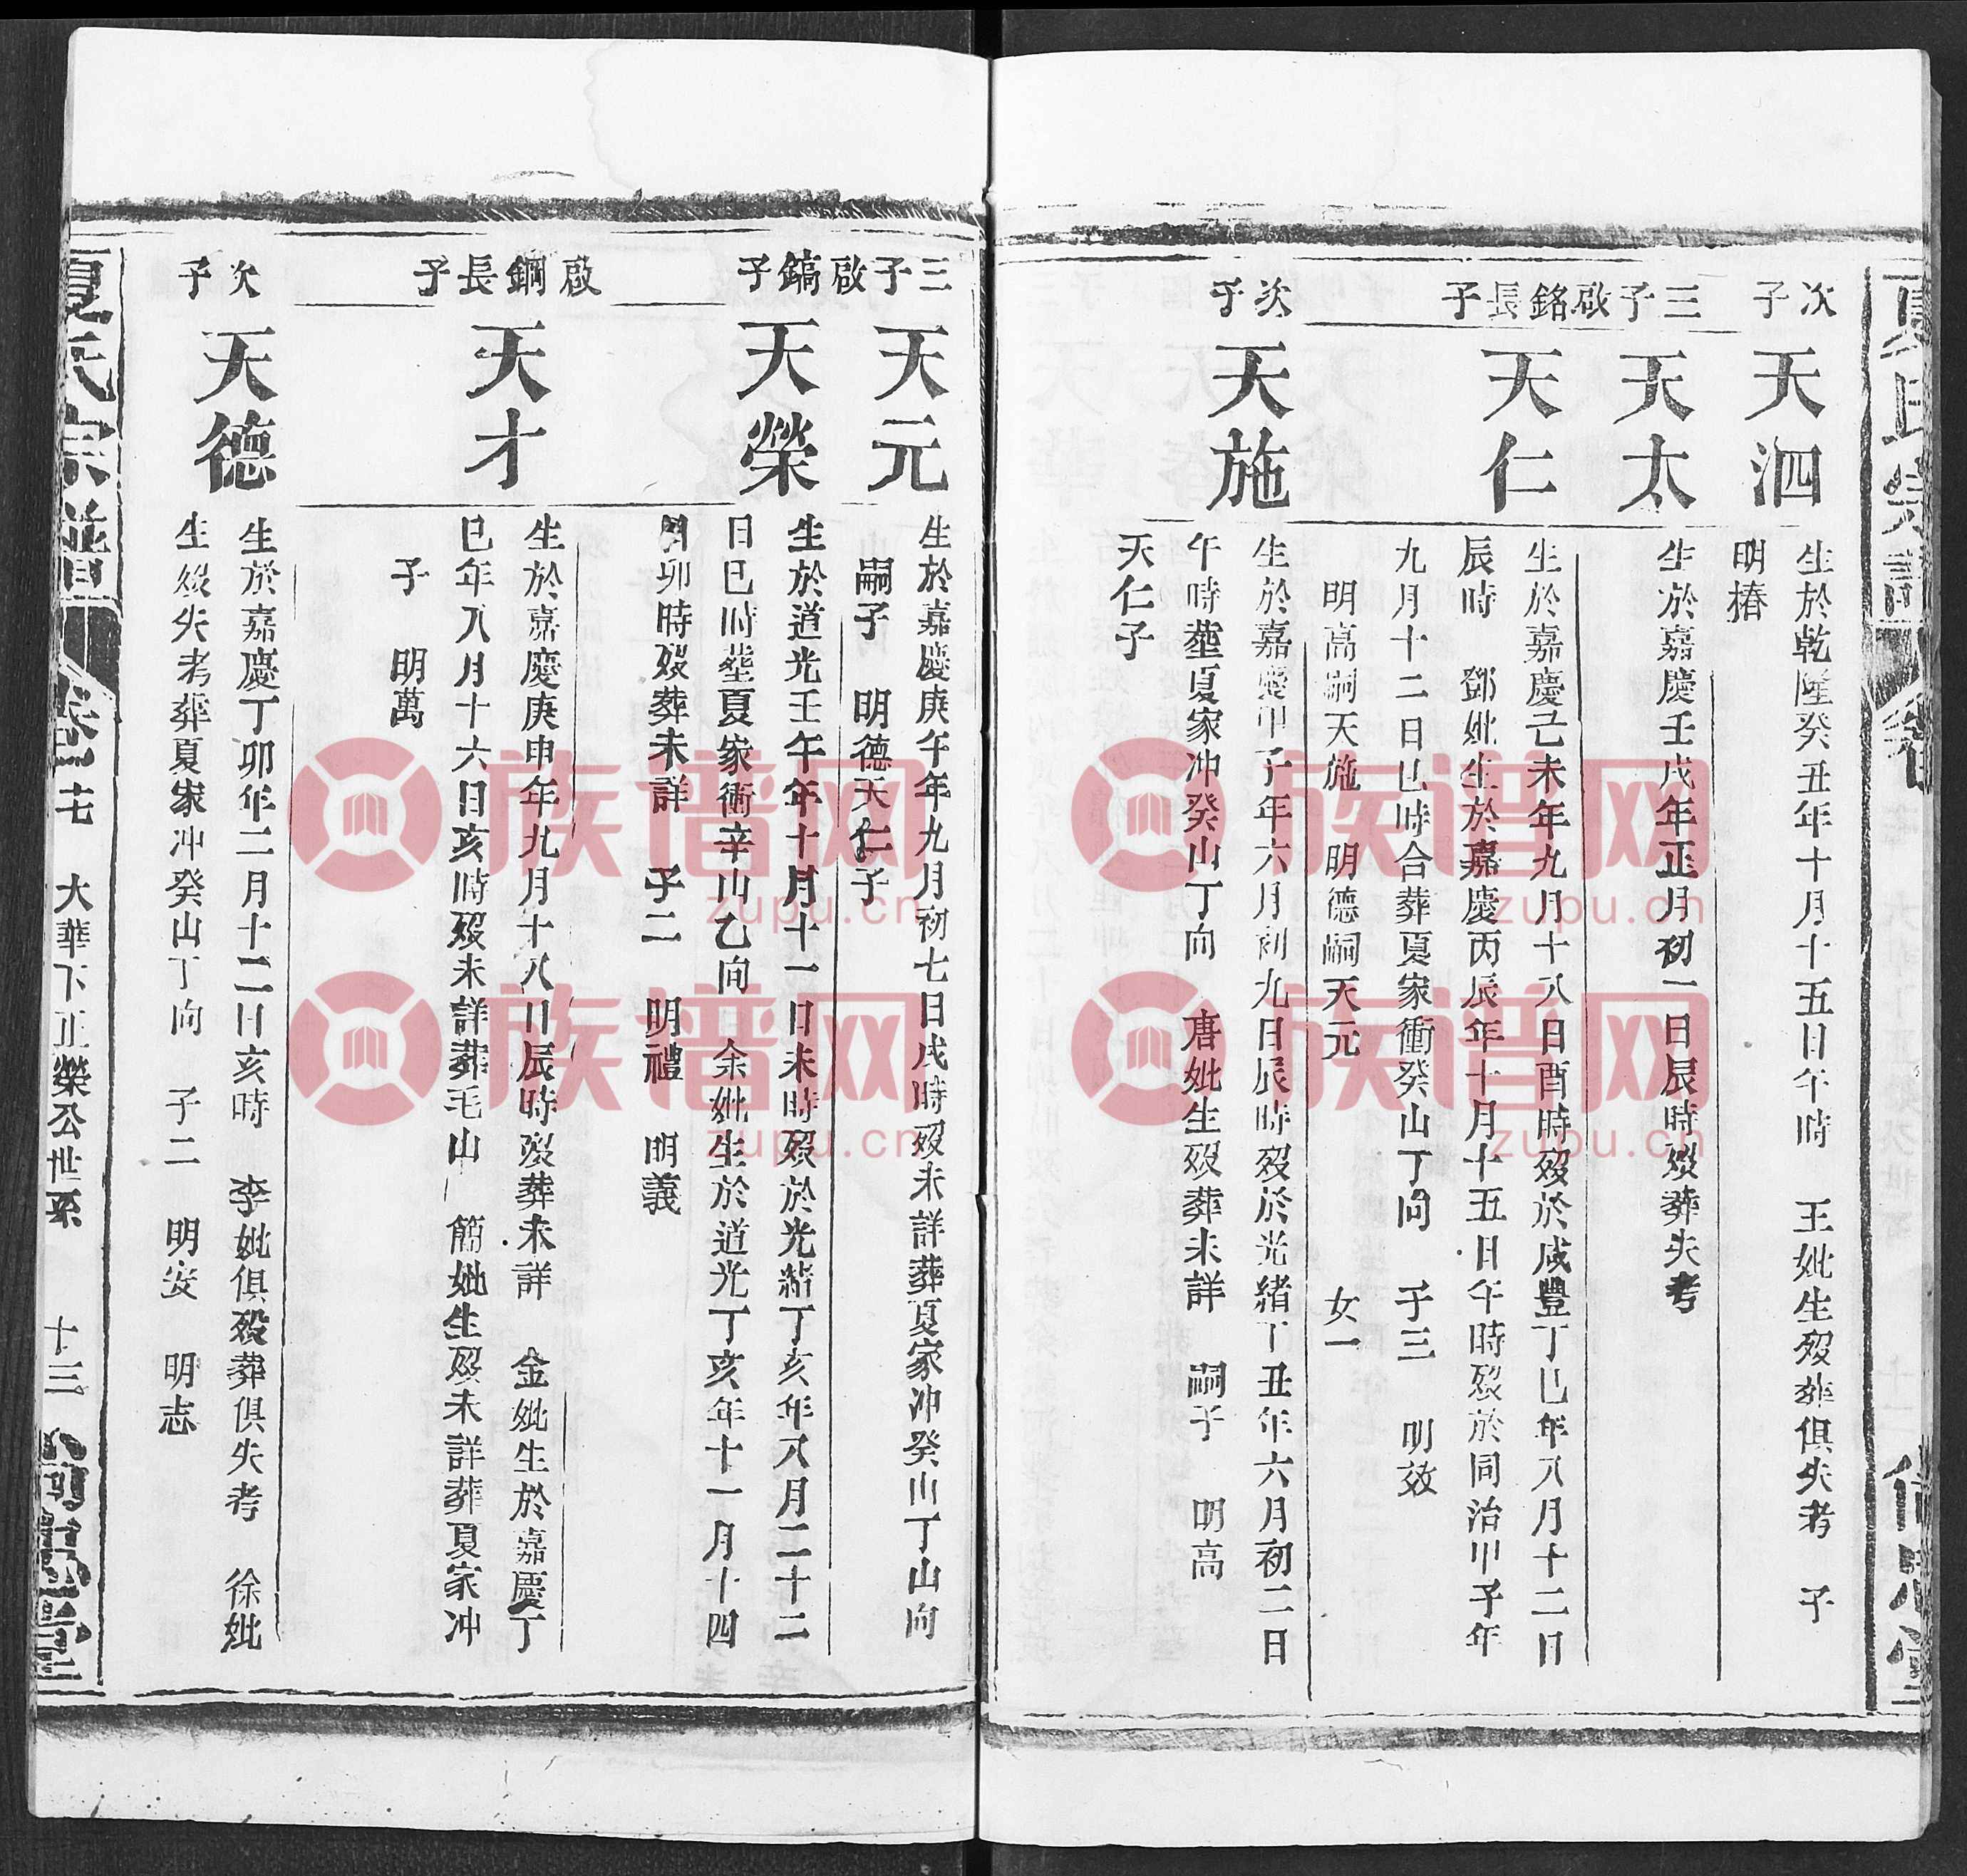 夏氏宗譜
卷
次子
天泗
生於乾隆癸丑年十月十五日午時 王妣生歿葬俱失考 子
明椿
三子
天太
生於嘉慶壬戌年正月初一日辰時歿葬失考
啟銘長子
天仁
生於嘉慶己未年九月十八日酉時歿於咸豐丁巳年八月十二日
辰時 鄧妣生於嘉慶丙辰年十月十五日午時歿於同治甲子年
九月十二日巳時合葬夏家衝癸山丁向 子三 明效
明高嗣天施 明德嗣天元 女一
次子
天施
生於嘉慶甲子年六月初九日辰時歿於光緒丁丑年六月初二日
午時塟夏家冲癸山丁向 唐妣生歿葬未詳 嗣子 明高
天仁子
三子
天元
生於嘉慶庚午年九月初七日戌時歿未詳葬夏家冲癸山丁山向
嗣子 明德天仁子
啟鎬子
天榮
生於道光壬午年十月十一日未時歿於光緒丁亥年八月二十二
日巳時塟夏家衝辛山乙向 余妣生於道光丁亥年十一月十四
日卯時歿葬未詳 子二 明禮 明義
啟鋼長子
天才
生於嘉慶庚申年九月十八日辰時歿葬未詳 金妣生於嘉慶丁
巳年八月十六日亥時歿未詳葬毛山 簡妣生歿未詳葬夏家冲
子 明萬
次子
天德
生於嘉慶丁卯年二月十二日亥時 李妣俱歿葬俱失考 徐妣
生歿失考葬夏家冲癸山丁向 子二 明安 明志
夏氏宗譜
大華下正榮公世系
十三